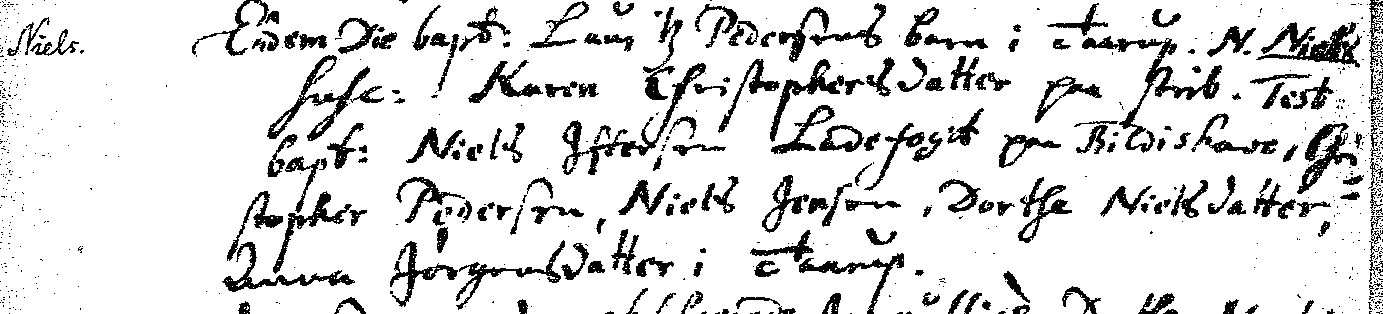 Niels. Eodem Die bapt: Lauritz Pedersens barn i Taarup. N. Niels
Susc: Karen Christophersdatter paa strib. Test
bapt: Niels Ifversen Ladefogit paa Hildiskave, Chri=
stopher Pedersen, Niels Jensen, Dorthe Nielsdatter,
Anna Jørgensdatter i Taarup.